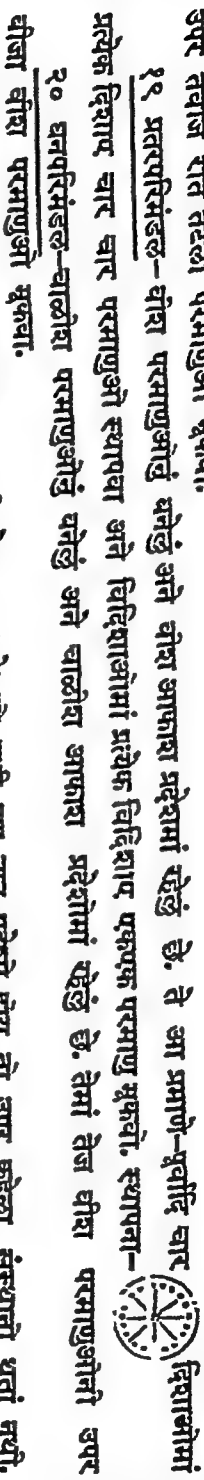 उपर तेवीज रीते तेटला परमाणुओ मूकवा.
१९ प्रतरपरिमंडल– वीश परमाणुओनुं बनेलुं अने वीश आकाश प्रदेशोमां रहेलुं छे. ते आ प्रमाणे–पूर्वादि चार दिशाओमां
प्रत्येक दिशाए चार चार परमाणुओ स्थापवा अने विदिशाओमां प्रत्येक विदिशाए एकएक परमाणु मूकवो. स्थापना–
२० घनपरिमंडल–चाळीश परमाणुओनुं बनेलुं अने चाळीश आकाश प्रदेशोमां रहेलुं छे. तेमां तेज वीश परमाणुओनी उपर
बीजा वीश परमाणुओ मूकवा.